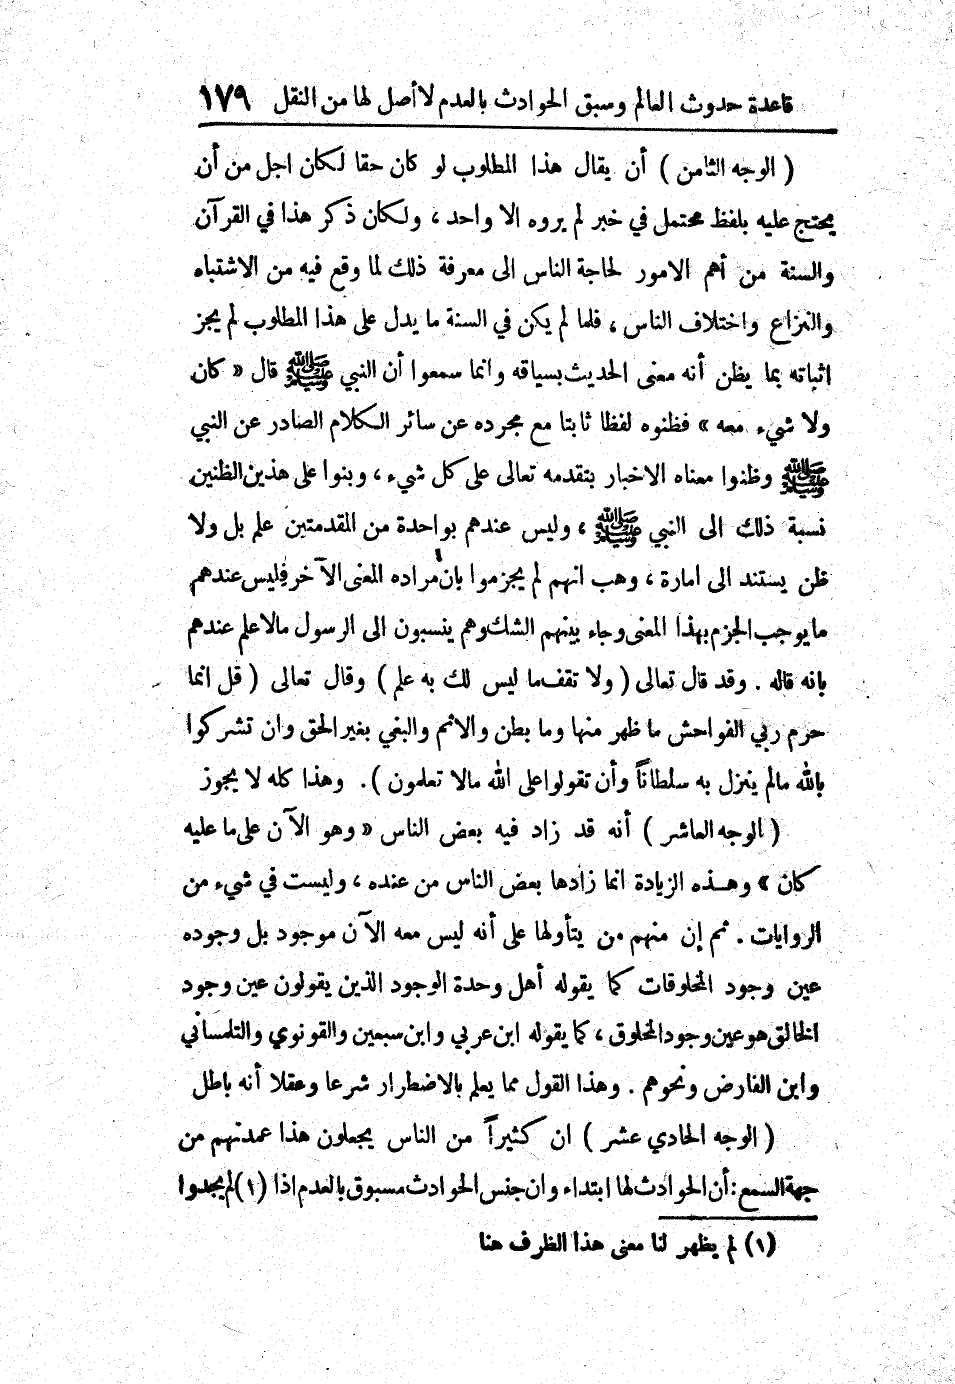 قاعدة حدوث العالم وسبق الحوادث بالعدم لا أصل لها من النقل ١٧٩
( الوجه الثامن ) أن يقال هذا المطلوب لو كان حقا لكان اجل من أن
يحتج عليه بلفظ محتمل في خبر لم يروه الا واحد ، ولكان ذكر هذا في القرآن
والسنة من أهم الامور لحاجة الناس الى معرفة ذلك لما وقع فيه من الاشتباه
والنزاع واختلاف الناس ، فلما لم يكن في السنة ما يدل على هذا المطلوب لم يجز
اثباته بما يظن أنه معنى الحديث بسياقه وانما سمعوا أن النبي ﷺ قال « كان
ولا شيء معه » فظنوه لفظا ثابتا مع مجرده عن سائر الكلام الصادر عن النبي
ﷺ وظنوا معناه الاخبار بتقدمه تعالى على كل شيء ، وبنوا على هذين الظنين
نسبة ذلك الى النبي ﷺ ، وليس عندهم بواحدة من المقدمتين علم بل ولا
ظن يستند الى امارة ، وهب انهم لم يجزموا بان مراده المعنى الآخر فليس عندهم
ما يوجب الجزم بهذا المعنى وجاء بينهم الشك وهم ينسبون الى الرسول مالا علم عندهم
بانه قاله . وقد قال تعالى ( ولا تقف ما ليس لك به علم ) وقال تعالى ( قل انما
حرم ربي الفواحش ما ظهر منها وما بطن والاثم والبغي بغير الحق وان تشركوا
بالله مالم ينزل به سلطاناً وأن تقولوا على الله مالا تعلمون ) . وهذا كله لا يجوز
( الوجه العاشر ) أنه قد زاد فيه بعض الناس « وهو الآن على ما عليه
كان » وهـذه الزيادة انما زادها بعض الناس من عنده ، وليست في شيء من
الروايات . ثم إن منهم من يتأولها على أنه ليس معه الآن موجود بل وجوده
عين وجود المخلوقات كما يقوله أهل وحدة الوجود الذين يقولون عين وجود
الخالق هو عين وجود المخلوق ، كما يقوله ابن عربي وابن سبعين والقونوي والتلمساني
وابن الفارض ونحوهم . وهذا القول مما يعلم بالاضطرار شرعا وعقلا أنه باطل
( الوجه الحادي عشر ) ان كثيراً من الناس يجعلون هذا عمدتهم من
جهة السمع : أن الحوادث لها ابتداء وان جنس الحوادث مسبوق بالعدم اذا (١) لم يجدوا
(١) لم يظهر لنا معنى هذا الظرف هنا